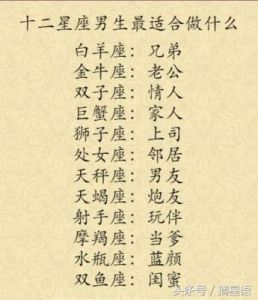 十二星座男生最适合做什么
白羊座：兄弟
金牛座：老公
双子座：情人
巨蟹座：家人
狮子座：上司
处女座：邻居
天秤座：男友
天蝎座：炮友
射手座：玩伴
摩羯座：当爹
水瓶座：蓝颜
双鱼座：闺蜜
头条号／摘星语